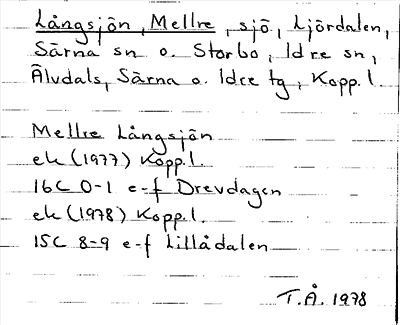 Långsjön, Mellre, sjö, Ljördalen,
Särna sn o. Storbo, Idre sn,
Älvdals, Särna o. Idre tg, Kopp.l.
Mellre Långsjön
ek (1977) Kopp.l.
16C 0-1 e-f Drevdagen
ek (1978) Kopp.l.
15C 8-9 e-f Lillådalen
T.Å. 1978